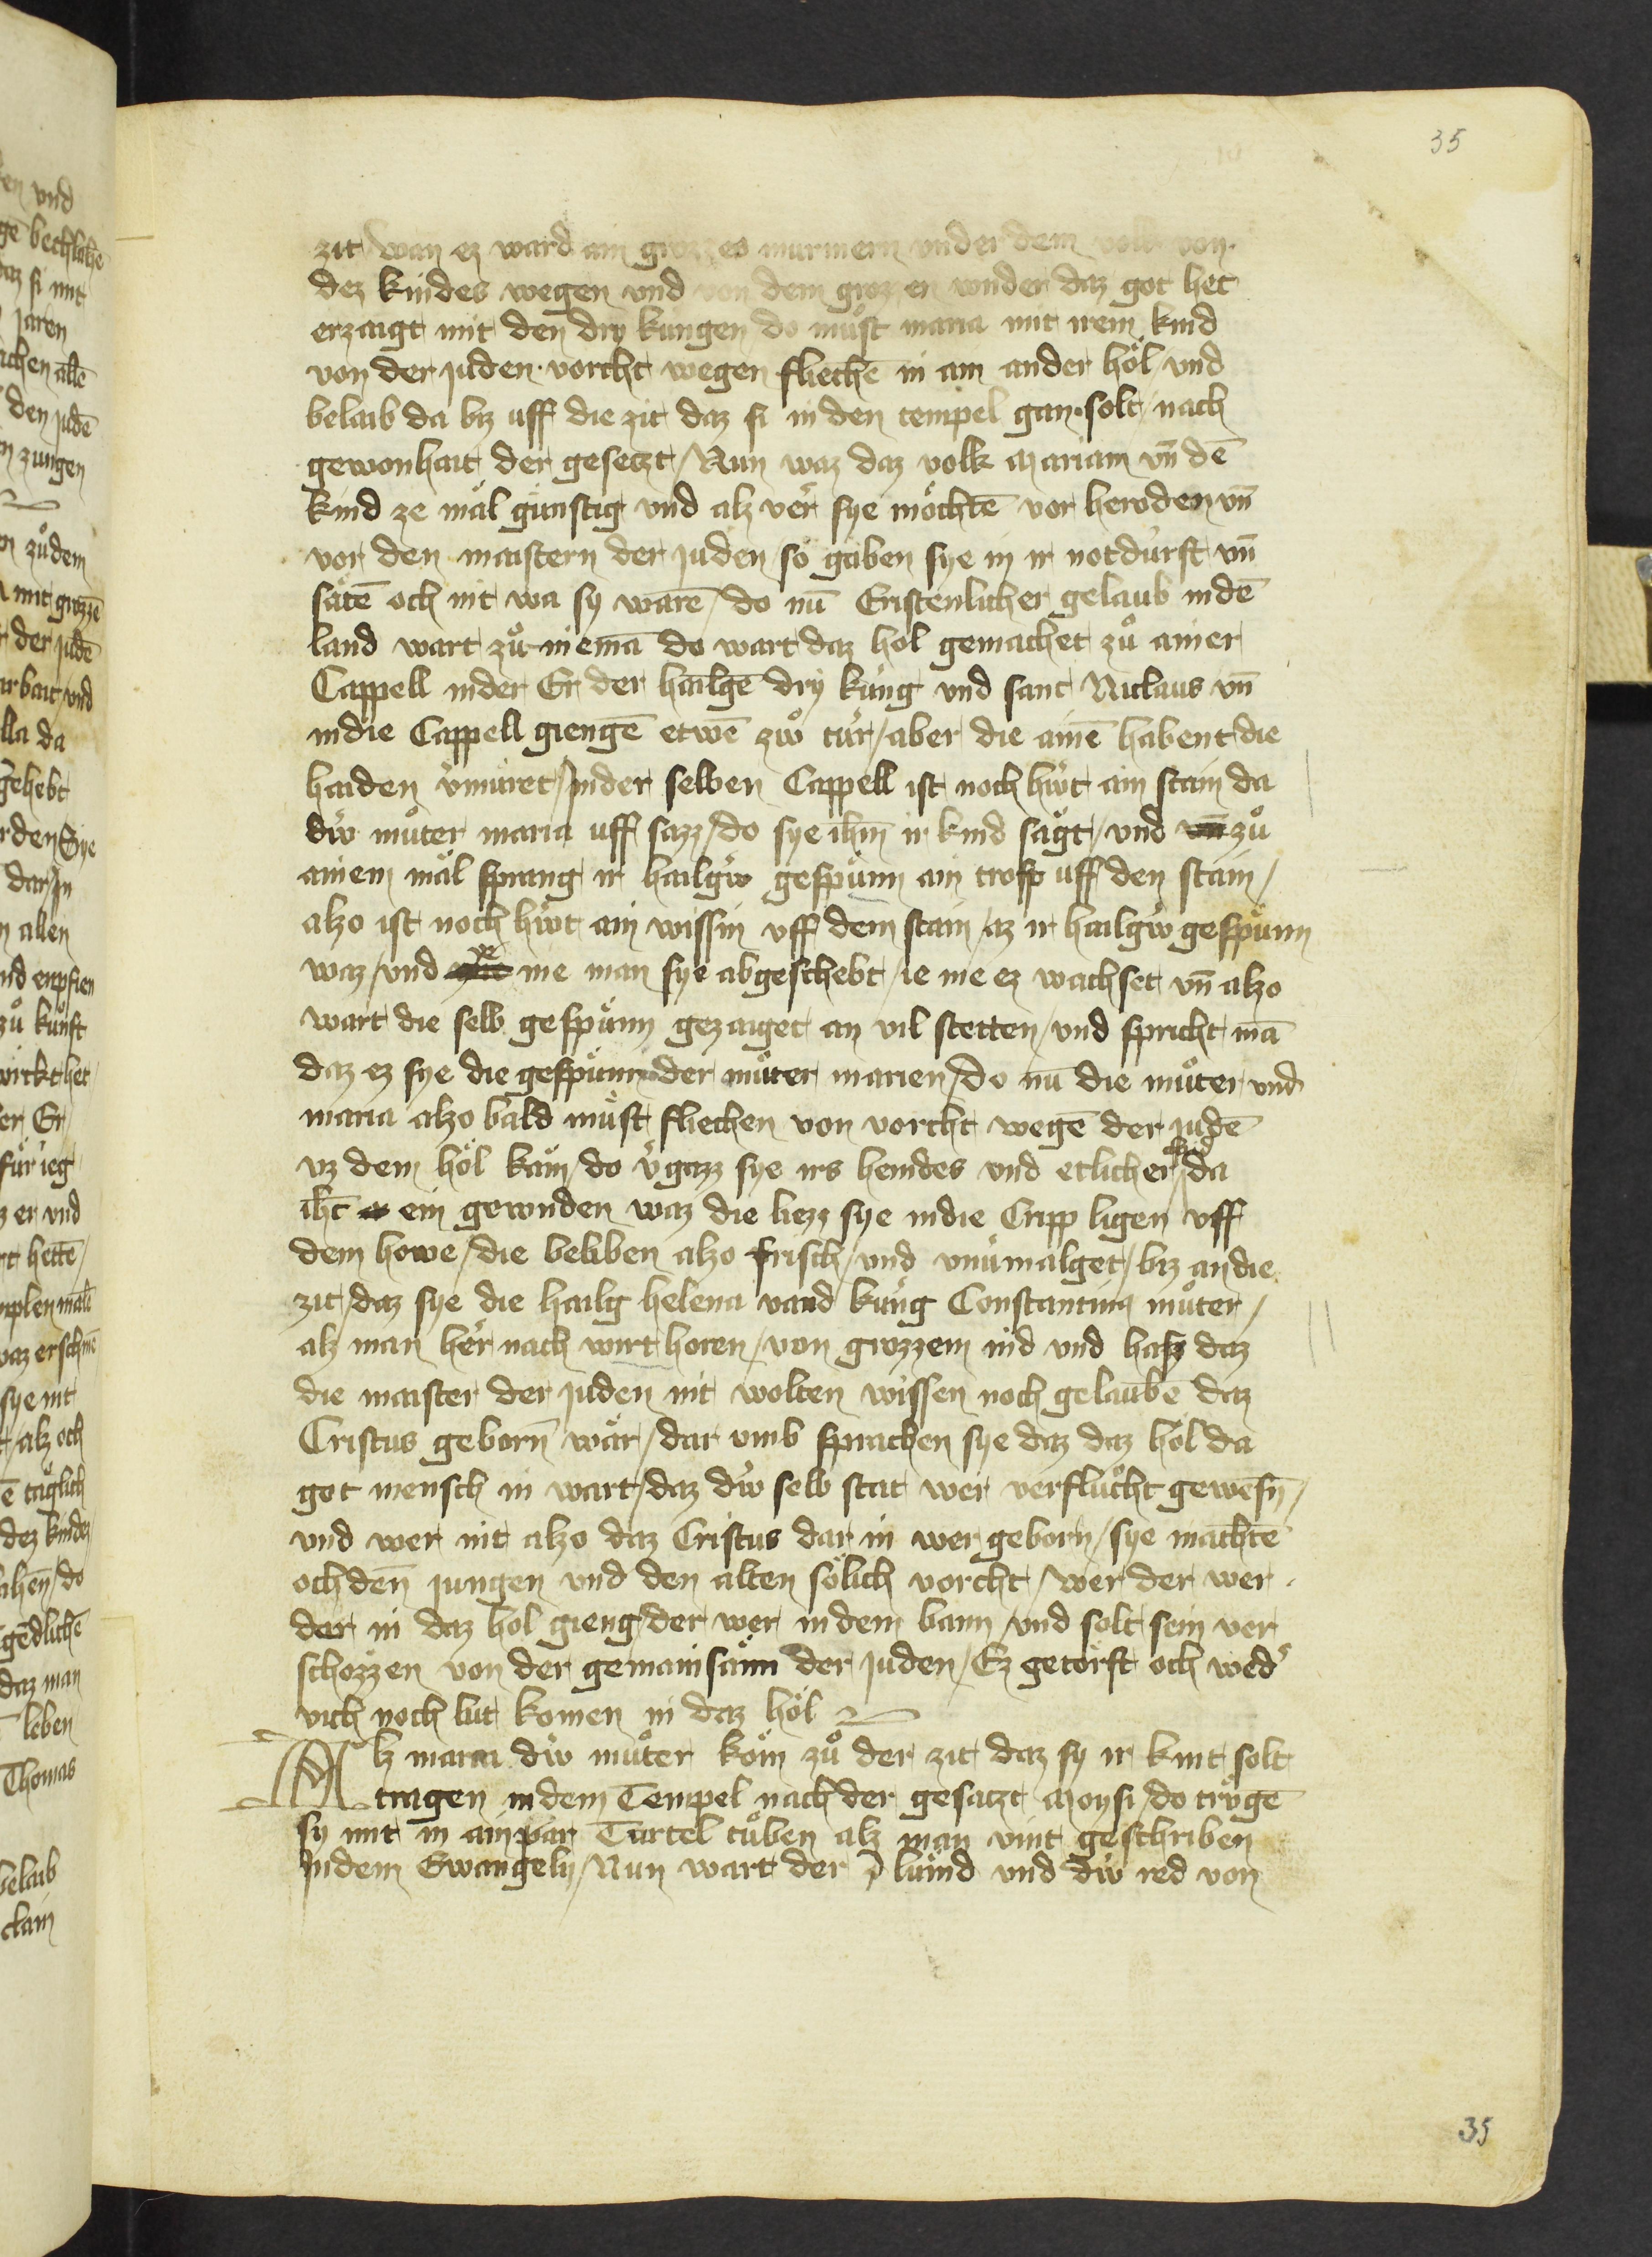 35
zit wan ez ward ain grozzes murmern vnder dem volk von
dez kindes wegen vnd von dem grozzen wnder daz got het
erzaigt mit den dry kungen do muͦst maria mit irem kind
von der juden vorcht wegen fliechē in ain ander hoͤl / vnd
belaib da biz uff die zit daz si in den tempel gan solt / nach
gewonhait der gesetzt / Nun waz daz volk Mariam vn̄ dē
kind ze mäl günstig vnd alz ver sye mochtē vor heroden vn̄
vor den maistern der juden so gäben sye in ir notdurft vn̄
saitē och nit wa sy warē / do nū Cristenlicher gelaub in dē
land wart zuͦ niemā do wart daz hol gemachet zuͦ ainer
Cappell in der Er der hailgē dry küng vnd sant Niclaus vn̄
in die Cappell giengē etwē zwo tür / aber die ainē habent die
haiden v̓muret / In der selben Cappell ist noch hẘt ain stain da
dẘ muͦter maria uff sazz / do sye ihm̄ ir kind saͤgt / vnd zuͦ
ainem mäl sprang ir hailgẘ gespünn ain tropf uff den stain /
alzo ist noch hẘt ain wissin vff dem stain / az ir hailgẘ gespünn
waz / vnd ye me man sye abgeschebt / ie me ez wachset vn̄ alzo
wart die selb gespünn gezaiget an vil stetten / vnd spricht mā
daz ez sye die gespünn der muͦter marien / do nū die muͦter vnd
maria alzo bald muͦst fliechen von vorcht wegē der judē
vz dem hoͤl kam / do v̓gazz sye irs hemdes vnd etlicher da
ihc̄ ein gewnden waz die liezz sye in die Cripp ligen vff
dem howe / die beliben alzo frisch / vnd vnuͤmalget / biz an die
zit / daz sye die hailg helena vand küng Constantinꝰ muͦter /
alz man her nach wirt horen / von grozzem nid vnd hasz daz
die maister der juden nit wolten wissen noch gelaubē daz
Cristus geborn waͤr / dar vmb sprachen sye daz daz hol da
got mensch in wart / daz dẘ selb stat wer verfluͦcht gewesn̄ /
vnd wer nit alzo daz Cristus dar in wer geborn / sye machtē
och den jungen vnd den alten soͤlich vorcht / wer der wer
der in daz hol gieng der wer in dem bann / vnd solt sein ver
schozzen von der gemainsam der juden / Ez getorst och wed̓
vich noch lüt komen in daz höl
Alz maria dẘ muͦter kom zuͦ der zit daz sy ir kint solt
tragen in dem Tempel nach der gesatzt Moysi / do truͦgē
sy mit in ain par Turtel tuͦben alz man vint geschriben
In dem Ewangely / Nun wart der luͤmd vnd dẘ red von
35